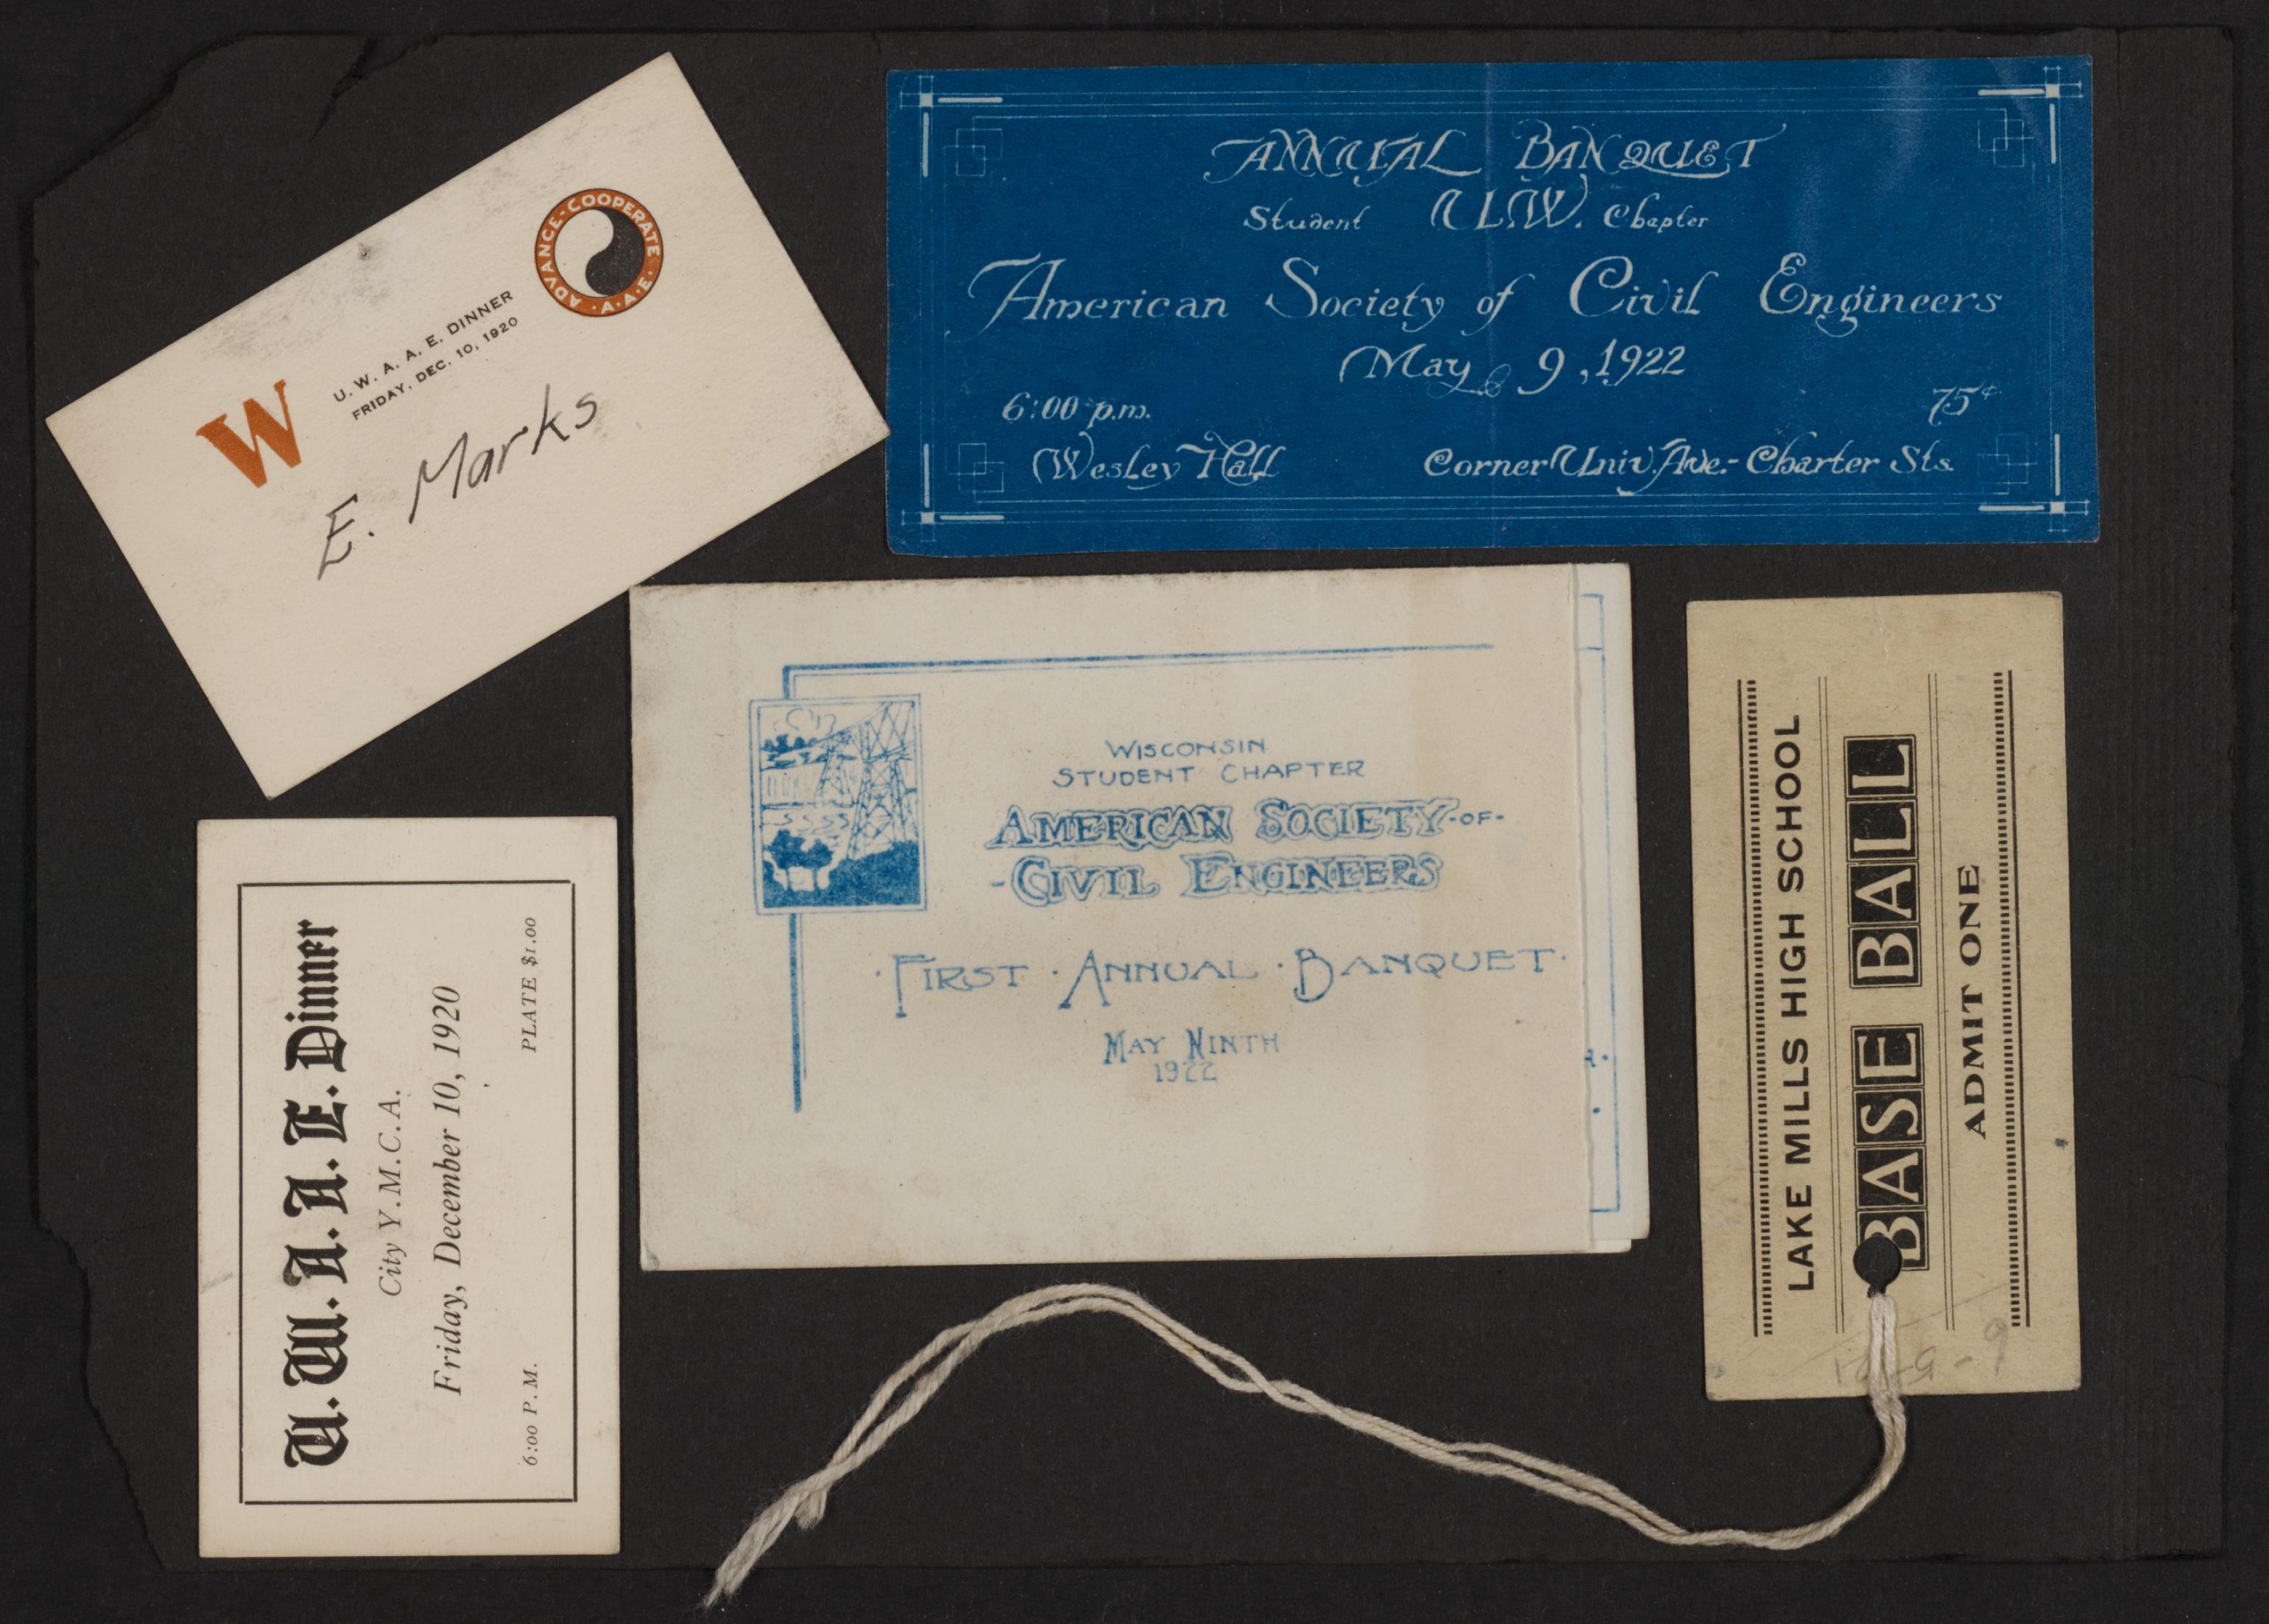 ADVANCE-COOPERATE
·A·A·E·
W
U. W. A. A. E. DINNER
FRIDAY, DEC. 10, 1920
E. Marks
ANNUAL BANQUET
Student U.W. Chapter
American Society of Civil Engineers
May 9, 1922
6:00 p.m. 75¢
Wesley Hall Corner Univ. Ave.- Charter Sts.
WISCONSIN
STUDENT CHAPTER
AMERICAN SOCIETY-OF-
-CIVIL ENGINEERS
·FIRST·ANNUAL·BANQUET·
MAY NINTH
1922
U. W. A. A. E. Dinner
City Y.M.C.A.
Friday, December 10, 1920
6:00 P.M. PLATE $1.00
LAKE MILLS HIGH SCHOOL
BASE BALL
ADMIT ONE